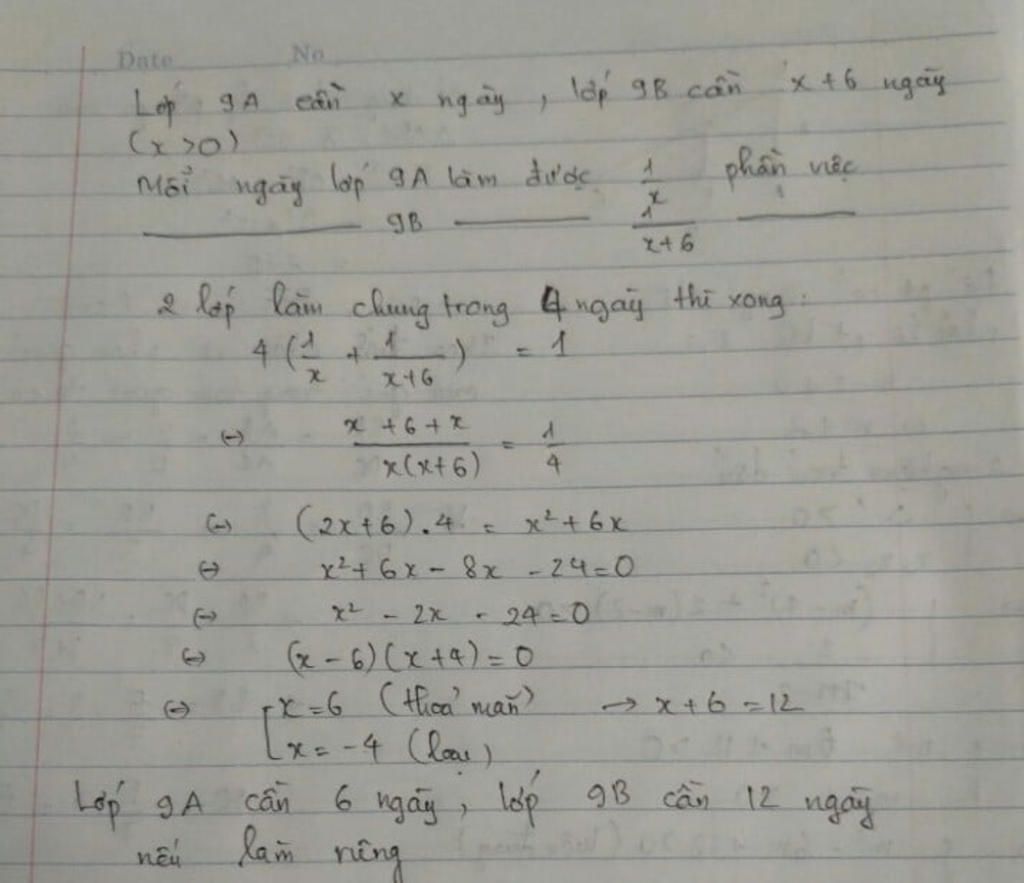 Date No
Lớp 9A cần x ngày, lớp 9B cần x+6 ngày
(x>0)
Mỗi ngày lớp 9A làm được 1/x phần việc
——— 9B ——— 1/(x+6) ———
2 lớp làm chung trong 4 ngày thì xong:
4(1/x + 1/(x+6)) = 1
(-) (x+6+x)/(x(x+6)) = 1/4
(-) (2x+6).4 = x²+6x
(-) x²+6x-8x-24=0
(-) x²-2x-24=0
(-) (x-6)(x+4)=0
(-) [x=6 (thoả mãn) → x+6=12
[x=-4 (loại)
Lớp 9A cần 6 ngày, lớp 9B cần 12 ngày
nếu làm riêng